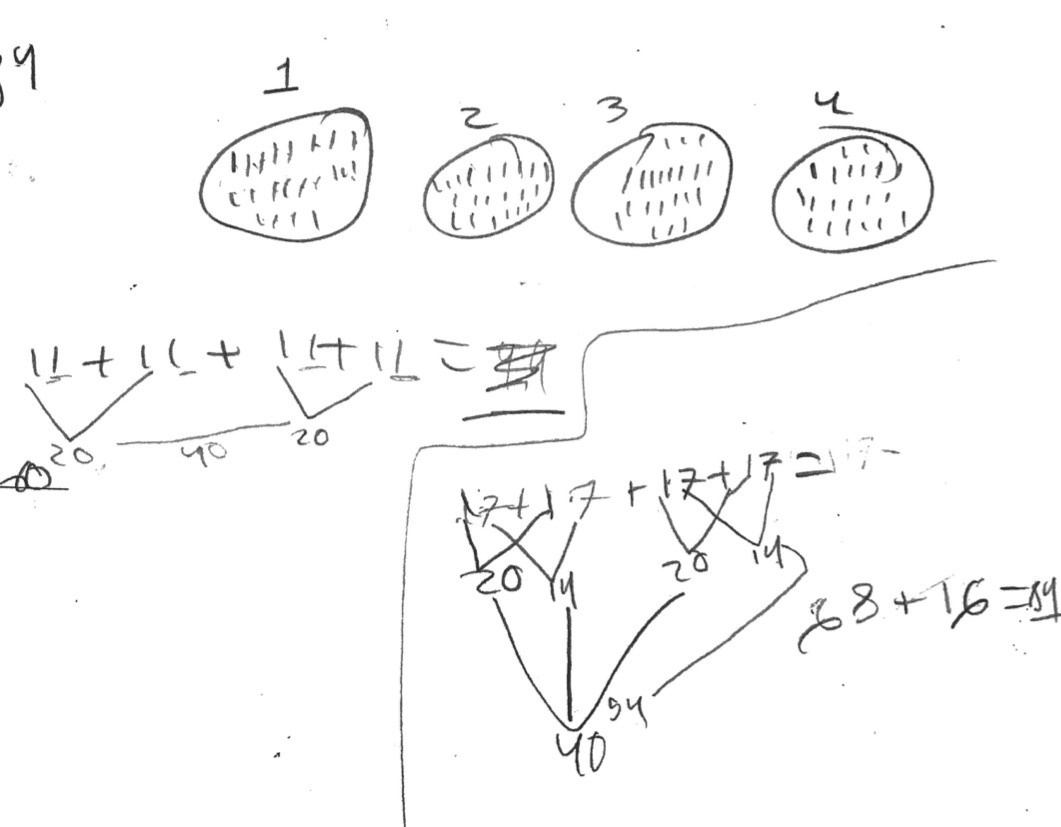 84
1 2 3 4
11 + 11 + 11 + 11 =
20 40 20
17 + 17 + 17 + 17 =
20 14 20 14
68 + 16 = 84
54
40